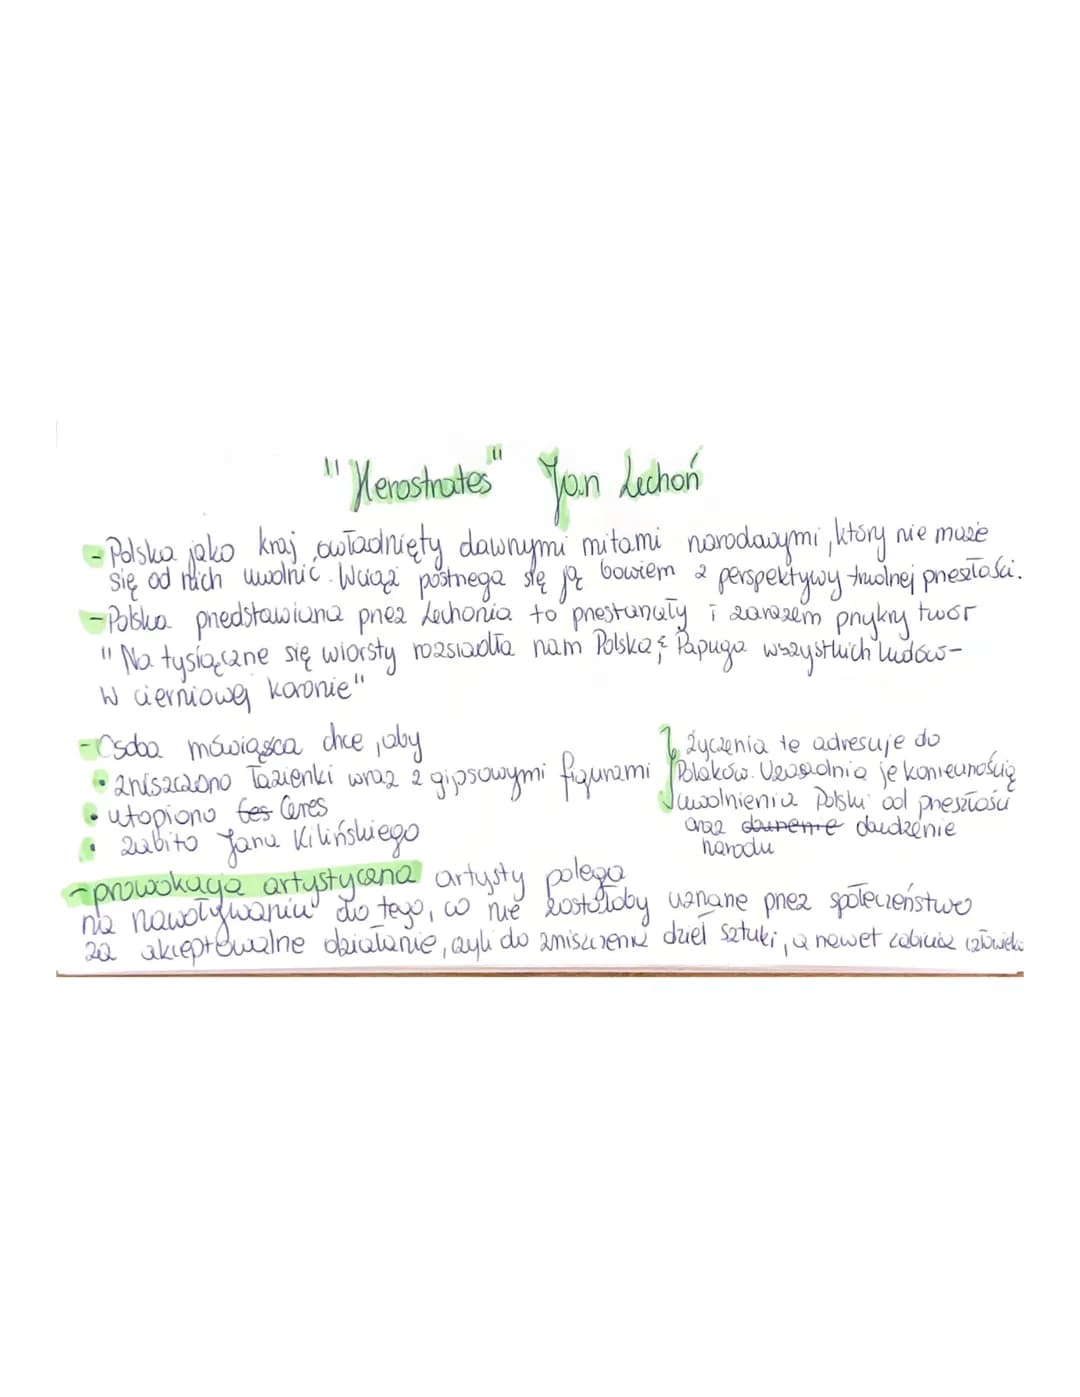 "Herostrates" Jan Lechoń
- Polska jako kraj owładnięty dawnymi mitami narodowymi, który nie może
się od nich uwolnić. Wciąż postrzega się ją bowiem z perspektywy trudnej przeszłości.
- Polska przedstawiona przez Lechonia to przestarzały i zarazem przykry twór
"Na tysiączne się wiorsty rozsiadła nam Polska; Papuga wszystkich ludów-
W cierniowej koronie"
- Osoba mówiąca chce, aby
• zniszczono Łazienki wraz z gipsowymi figurami
• utopiono Ceres
• zabito Jana Kilińskiego
życzenia te adresuje do
Polaków. Uzasadnia je koniecznością
uwolnienia Polski od przeszłości
oraz dawienie
narodu
- prowokacja artystyczna artysty polega
na nawoływaniu do tego, co nie zostałoby uznane przez społeczeństwo
za akceptowalne działanie, czyli do zniszczenia dzieł sztuki, a nawet zabicia człowieka